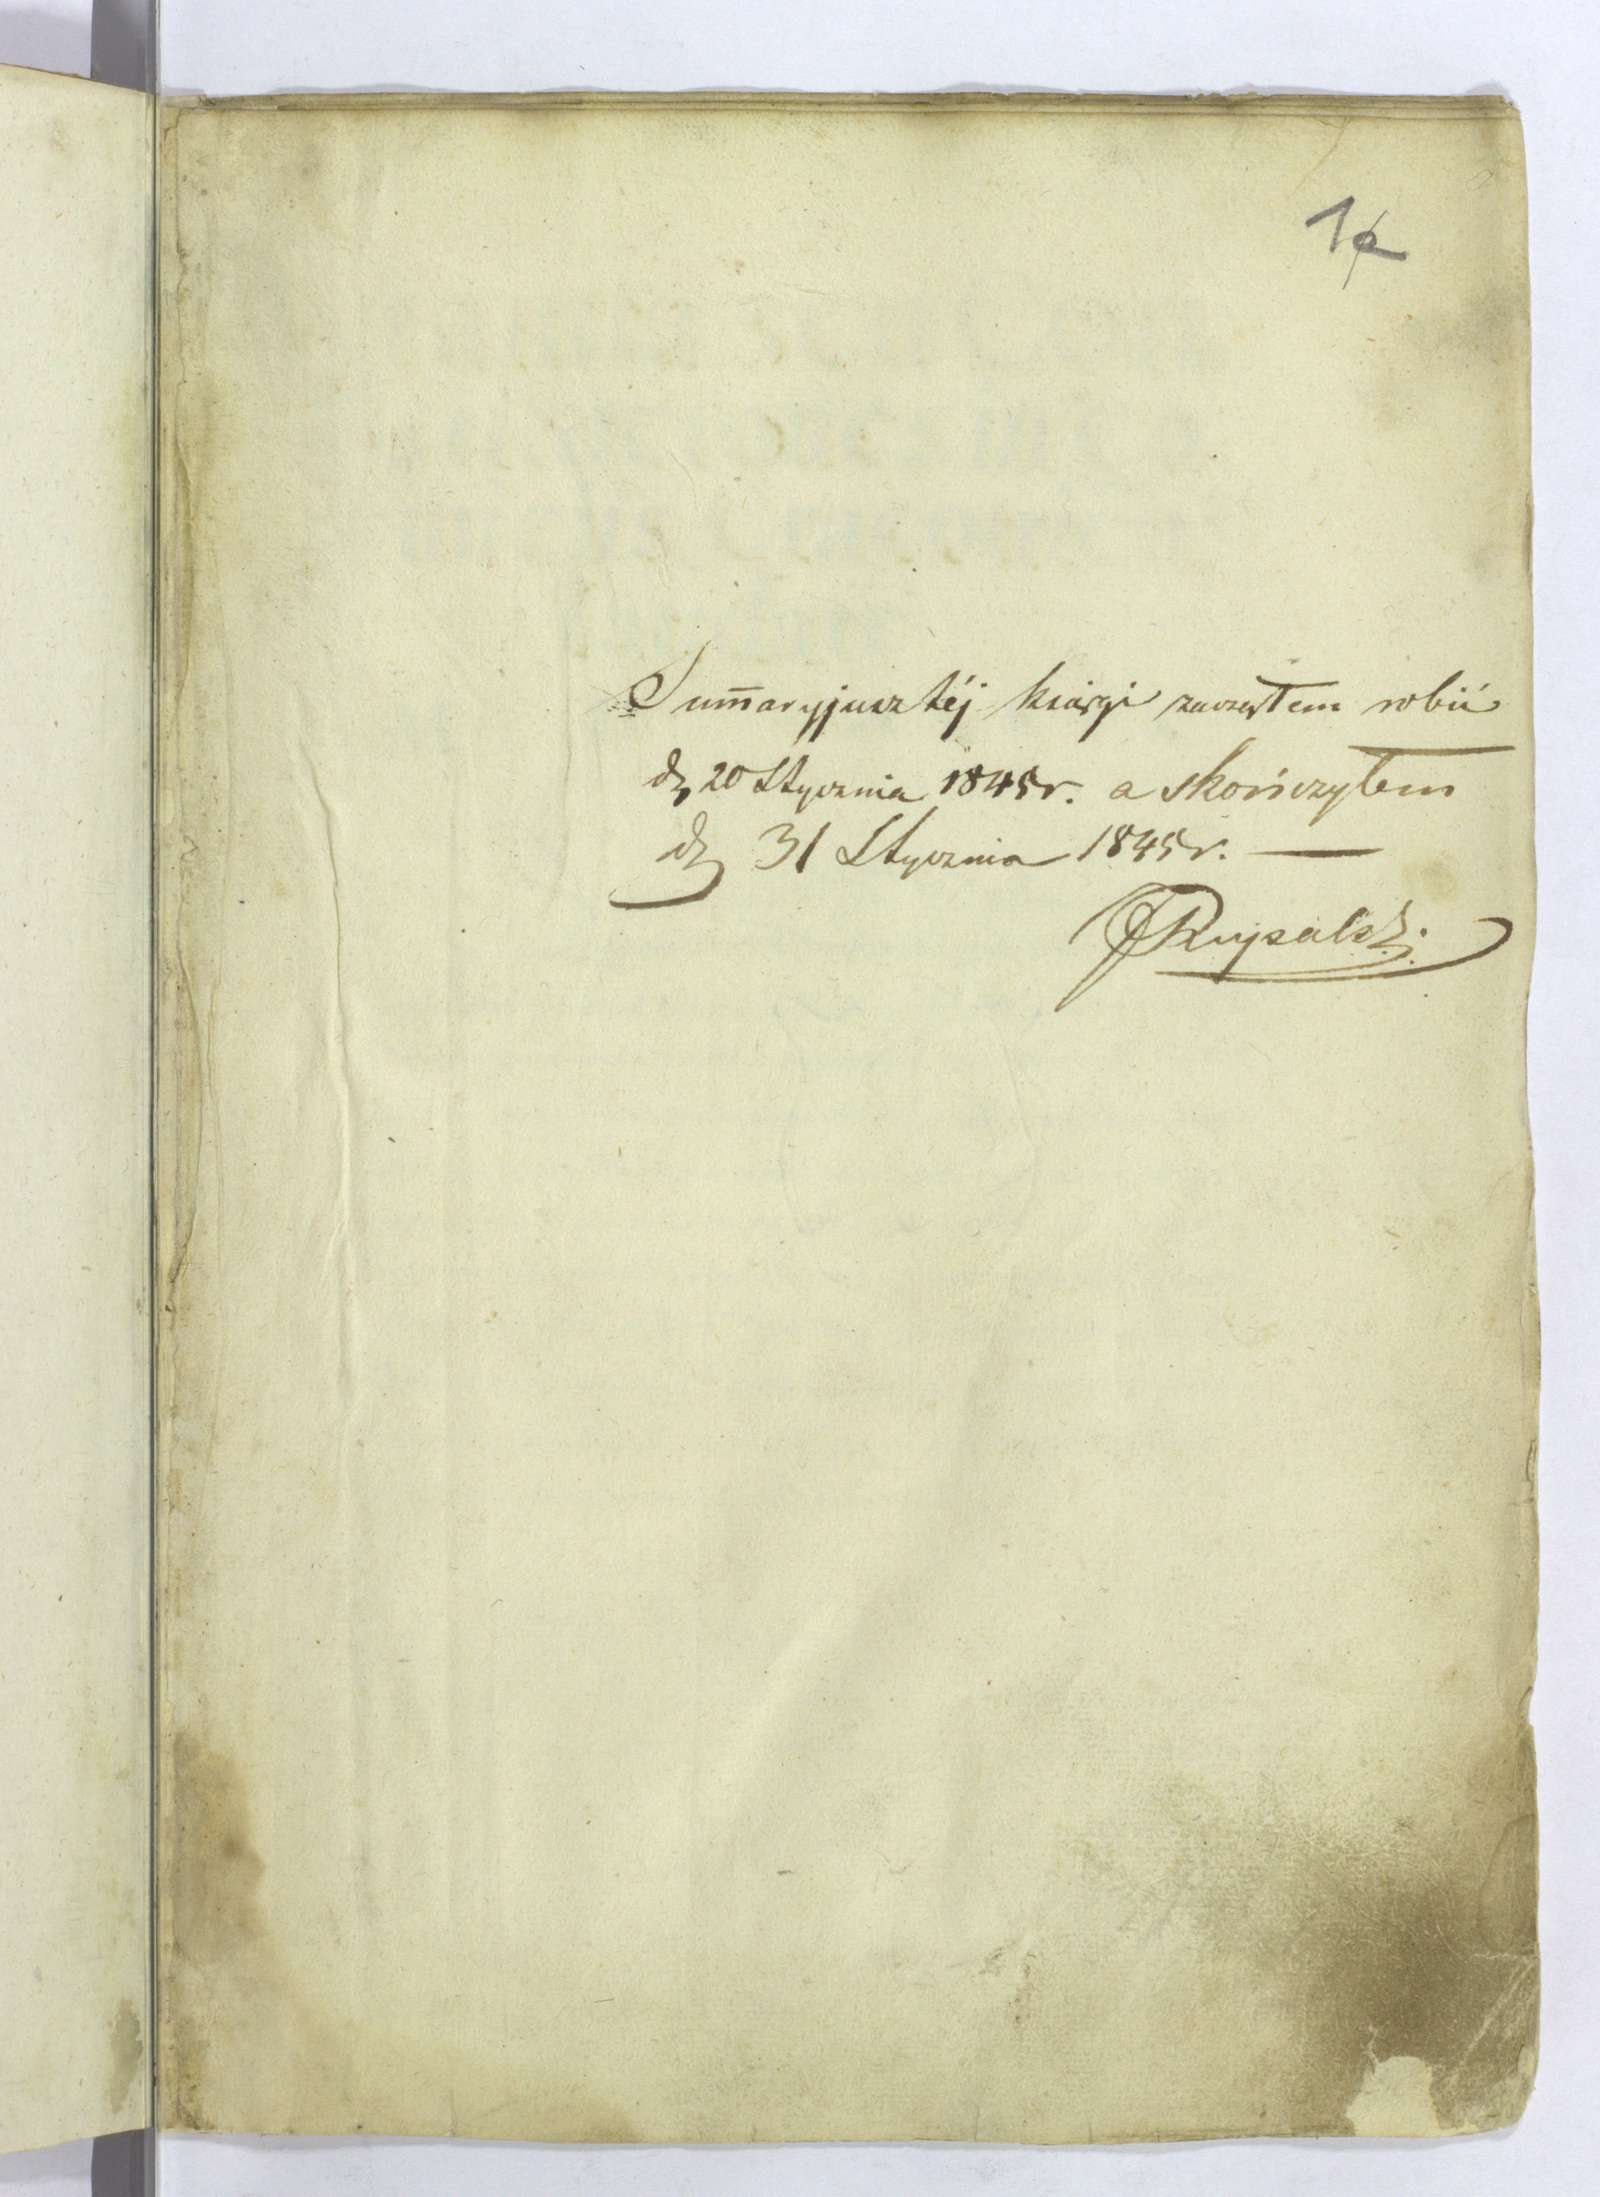 1a
Sum̄aryjusz téj księgi zacząłem robić
d. 20 Stycznia 1845 r. a skończyłem
d. 31 Stycznia 1845 r. —